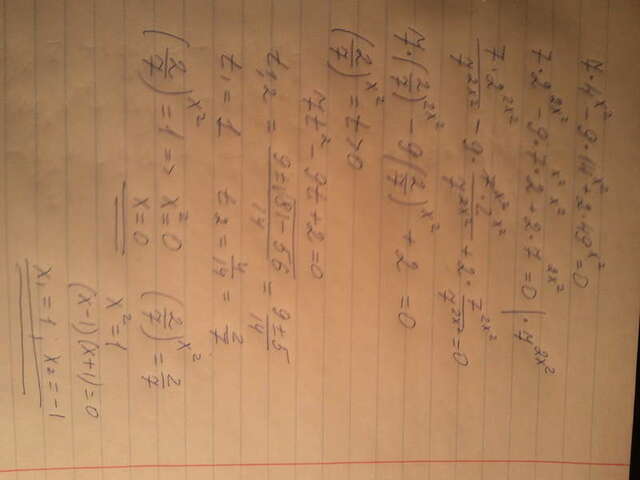 7·4^x² - 9·14^x² + 2·49^x² = 0
7·2^2x² - 9·7^x²·2^x² + 2·7^2x² = 0 | · 7^2x²
7·2^2x²/7^2x² - 9·7^x²·2^x²/7^2x² + 2·7^2x²/7^2x² = 0
7·(2/7)^2x² - 9(2/7)^x² + 2 = 0
(2/7)^x² = t > 0
7t² - 9t + 2 = 0
t₁,₂ = 9±√81-56/14 = 9±5/14
t₁ = 1 t₂ = 4/14 = 2/7
(2/7)^x² = 1 => x² = 0 (2/7)^x² = 2/7
x = 0 x² = 1
(x-1)(x+1) = 0
x₁ = 1; x₂ = -1